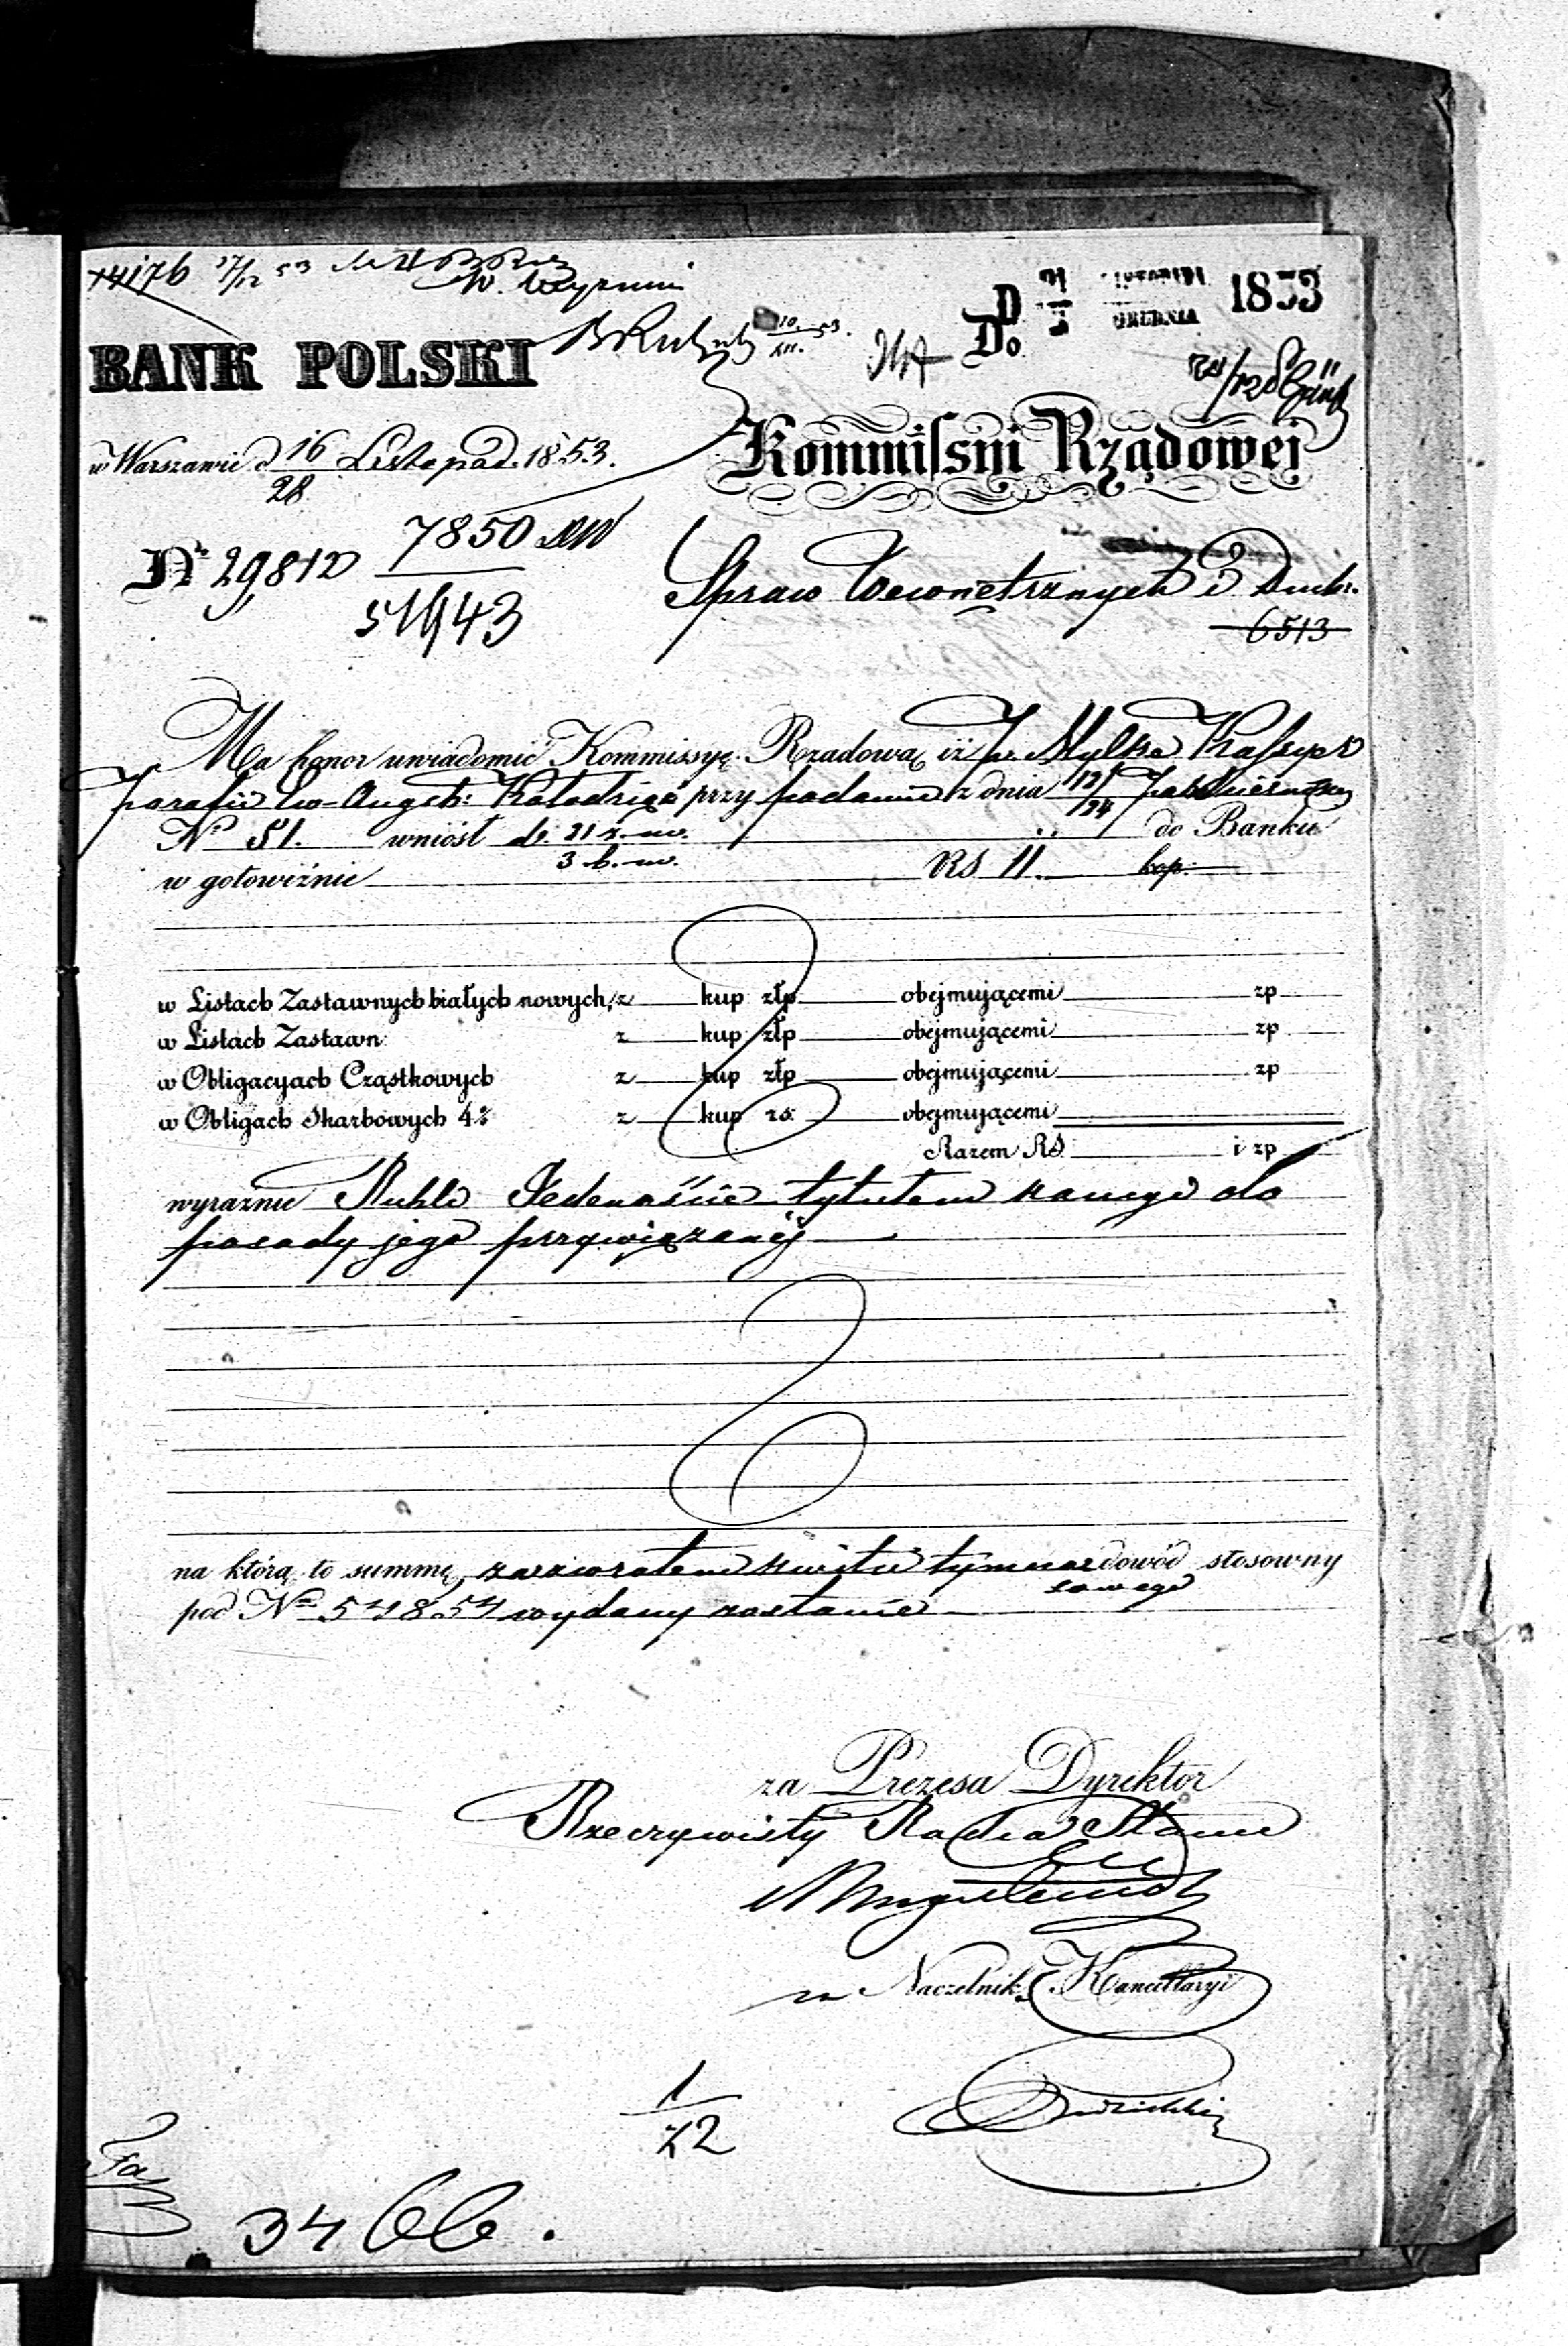 14176 17/12 53
BANK POLSKI
10/XII. 53.
D
Do
GRUDNIA
1853
w Warszawie d 16/28 Listopad. 1853.
Kommissyi Rządowej
Nr 29,812
7850
51943
Spraw Wewnętrznych i Duch:
6513
Ma honor uwiadomić Kommissyę Rządową iż P. Mylke Kassyer
parafii Ew-Augsb: przy podaniu z dnia 12/24 Października
No 51. wniósł d. 21 z. m. / 3 b. m. do Banku
w gotowiźnie RS 11. kop:
w Listach Zastawnych białych nowych, z kup złp obejmującemi zp
w Listach Zastawn: z kup złp obejmującemi zp
w Obligacyach Cząstkowych z kup złp obejmującemi zp
w Obligach Skarbowych 4% z kup rs: obejmującemi
Razem RS i zp
wyraźnie Rubli Jedenaście tytułem kaucyi do
posady jego przywiązanej
na którą to summę, za zwrotem kwitu tymczasowego dowód stosowny
pod No 54854 wydany zostanie
za Prezesa Dyrektor
Rzeczywisty Radca Stanu
za Naczelnik Kancellaryi
1/12
34